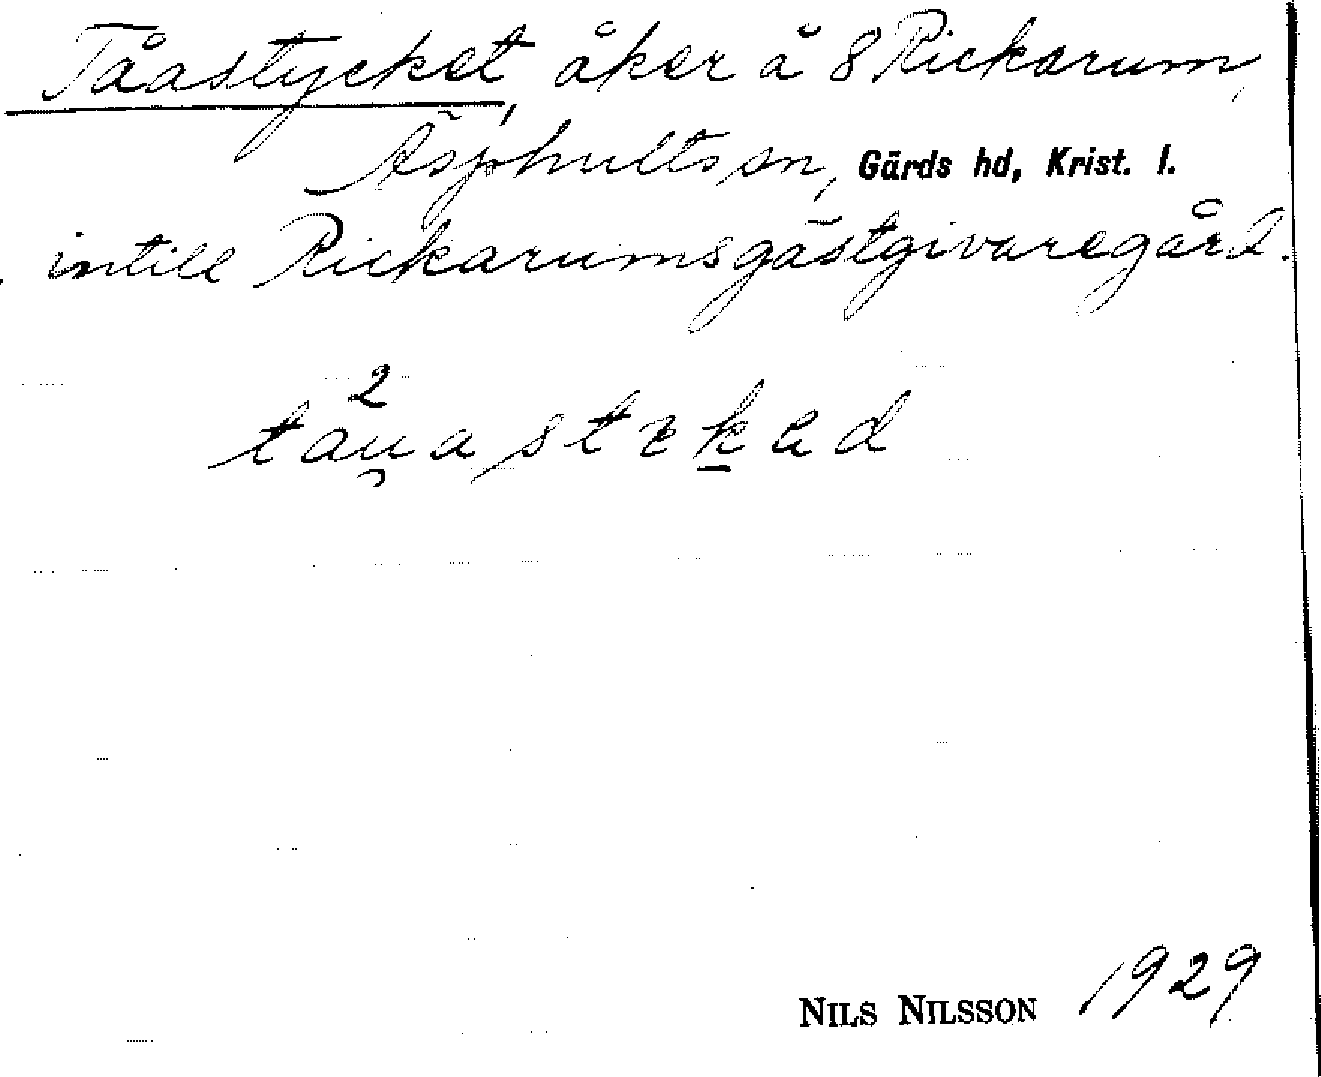 Tåastycket, åker å 8 Rickarum,
Äsphults sn, Gärds hd, Krist. l.
intill Rickarumsgästgivaregård.
2
NILS NILSSON 1929